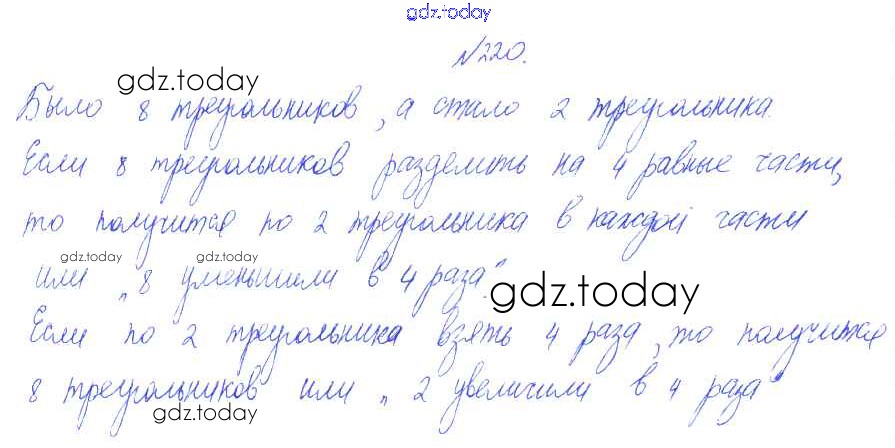 gdz.today
№220.
gdz.today
Было 8 треугольников, а стало 2 треугольника.
Если 8 треугольников разделить на 4 равные части,
то получится по 2 треугольника в каждой части
gdz.today gdz.today
или „8 уменьшили в 4 раза".
gdz.today
Если по 2 треугольника взять 4 раза, то получится
8 треугольников или „2 увеличили в 4 раза"
gdz.today